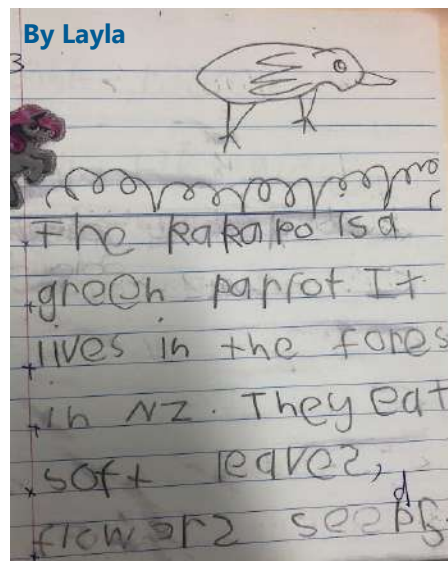 By Layla
3
The kakapo is a
green parrot. It
lives in the fores
in NZ. They eat
soft leaves,
flowers seeds